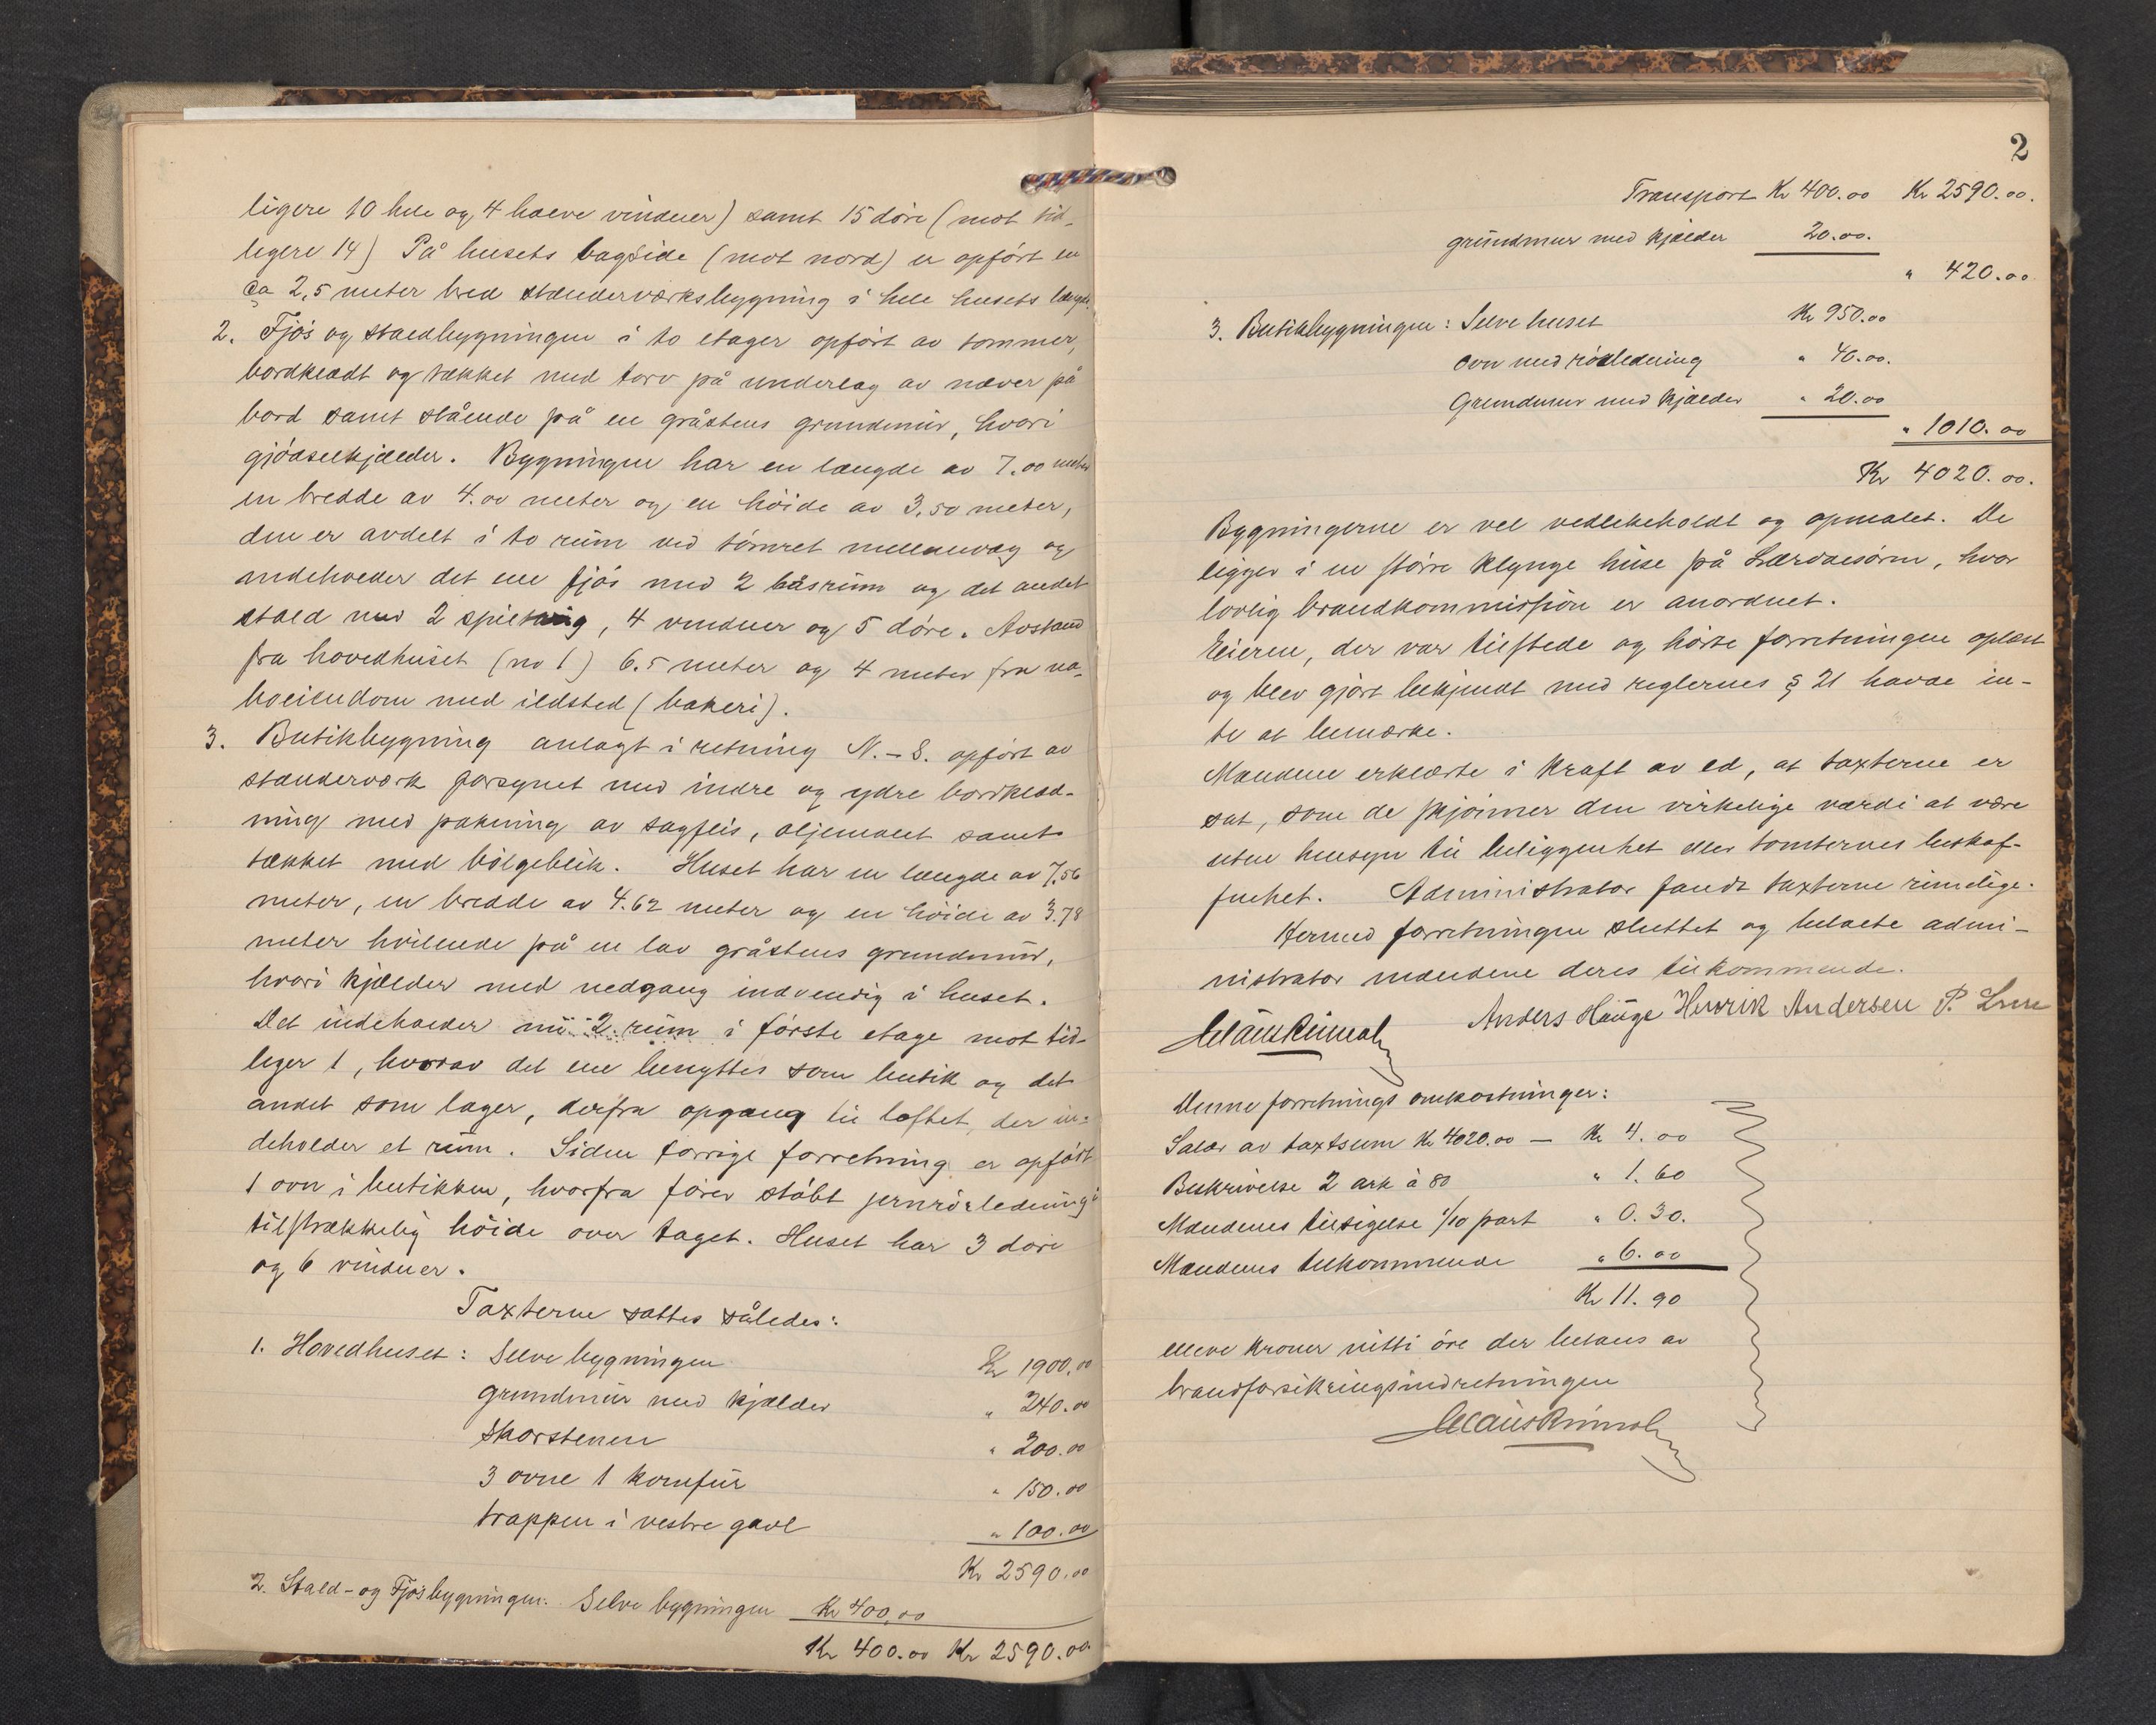 ligere 10 hele og 4 halve vinduer) samt 15 døre (mot tid-
ligere 14) På husets bagside (mot nord) er opført en
ca 2,5 meter bred stænderværksbygning i hele husets længde.
2. Fjøs og staldbygningen i to etager opført av tømmer,
bordklædt og tækket med torv på underlag av næver på
bord samt stående på en gråstens grundmur, hvori
gjødselkjælder. Bygningen har en længde av 7.00 meter
en bredde av 4.00 meter og en høide av 3,50 meter,
den er avdelt i to rum ved tømret mellemvæg og
indeholder det ene fjøs med 2 båsrum og det andet
stald med 2 spiltaug, 4 vinduer og 5 døre. Avstand
fra hovedhuset (no 1) 6.5 meter og 4 meter fra na-
boeiendom med ildsted (bakeri).
3. Butikbygning anlagt i retning N.-S. opført av
stænderverk forsynet med indre og ydre bordklæd-
ning med pakning av sagflis, oljemalet samt
tækket med bølgeblik. Huset har en længde av 7,56
meter, en bredde av 4.62 meter og en høide av 3.78
meter hvilende på en lav gråstens grundmur,
hvori kjælder med nedgang indvendig i huset.
Det indeholder nu 2 rum i første etage mot tid-
liger 1, hvorav det ene benyttes som butik og det
andet som lager, derfra opgang til loftet der in-
deholder et rum. Siden forrige forretning er opført
1 ovn i butikken, hvorfra fører støbt jernrørledning i
tilstrækkelig høide over taget. Huset har 3 døre
og 6 vinduer.
Taxterne sattes således:
1. Hovedhuset: Selve bygningen Kr 1900.00
grundmur med kjælder " 240.00
Skorstenen " 200.00
3 ovne 1 komfur " 150.00
trappen i vestre gavl " 100.00
Kr 2590.00
2. Stald- og Fjøsbygningen: Selve bygningen Kr 400,00
Kr 400.00 Kr 2590.00
2
Transport Kr 400.00 Kr 2590.00.
grundmur med kjælder 20.00.
" 420.00
3. Butikbygningen: Selve huset Kr 950.00
ovn med rørledning " 40.00.
Grundmur med kjælder " 20.00
" 1010.00
Kr 4020.00.
Bygningerne er vel vedlikeholdt og opmalet. De
ligger i en større klynge huse på Lærdalsøren, hvor
lovlig brandkommission er anordnet.
Eieren, der var tilstede og hørte forretningen oplæst
og blev gjort bekjendt med reglernes § 21 havde in-
tet at bemærke.
Mændene erklærte i kraft av ed, at taxterne er
sat, som de skjønner den virkelige værdi at være
uten hensyn til beliggenhet eller tomternes beskaf-
fenhet. Administrator fandt taxterne rimelige.
Hermed forretningen sluttet og betalte admi-
nistrator mændene deres tilkommende.
Anders Hauge Henrik Andersen P.
Denne forretnings omkostninger:
Salær av taxtsum Kr 4020.00 — Kr 4.00
Beskrivelse 2 ark à 80 " 1.60
Mændenes tilsigelse 1/10 part " 0.30.
Mændenes tilkommende " 6.00
Kr 11.90
elleve kroner nitti øre der betales av
brandforsikringsindretningen